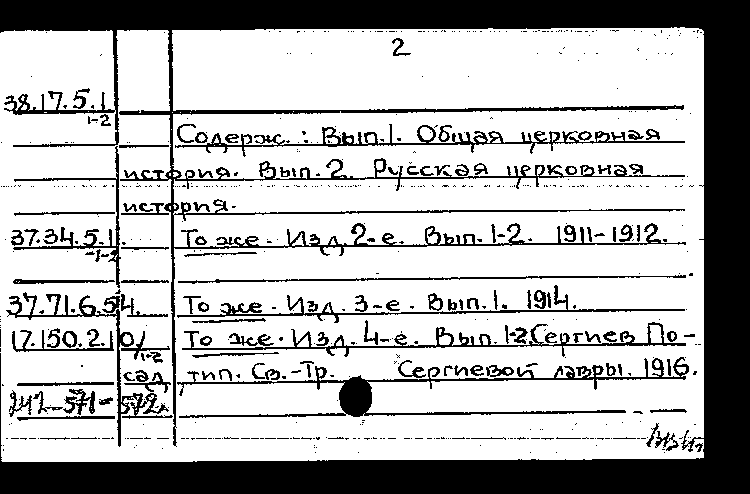 2
38.17.5.1
1-2
Содерж. : Вып.1. Общая церковная
история. Вып. 2. Русская церковная
история.
37.34.5.1. То же. Изд. 2-е. Вып. 1-2. 1911-1912.
1-2
37.71.6.54. То же. Изд. 3-е. Вып. 1. 1914.
17.150.2.10/ То же. Изд. 4-е. Вып. 1-2. Сергиев По-
1-2
сад, тип. Св.-Тр. Сергиевой лавры. 1916.
242-571-572